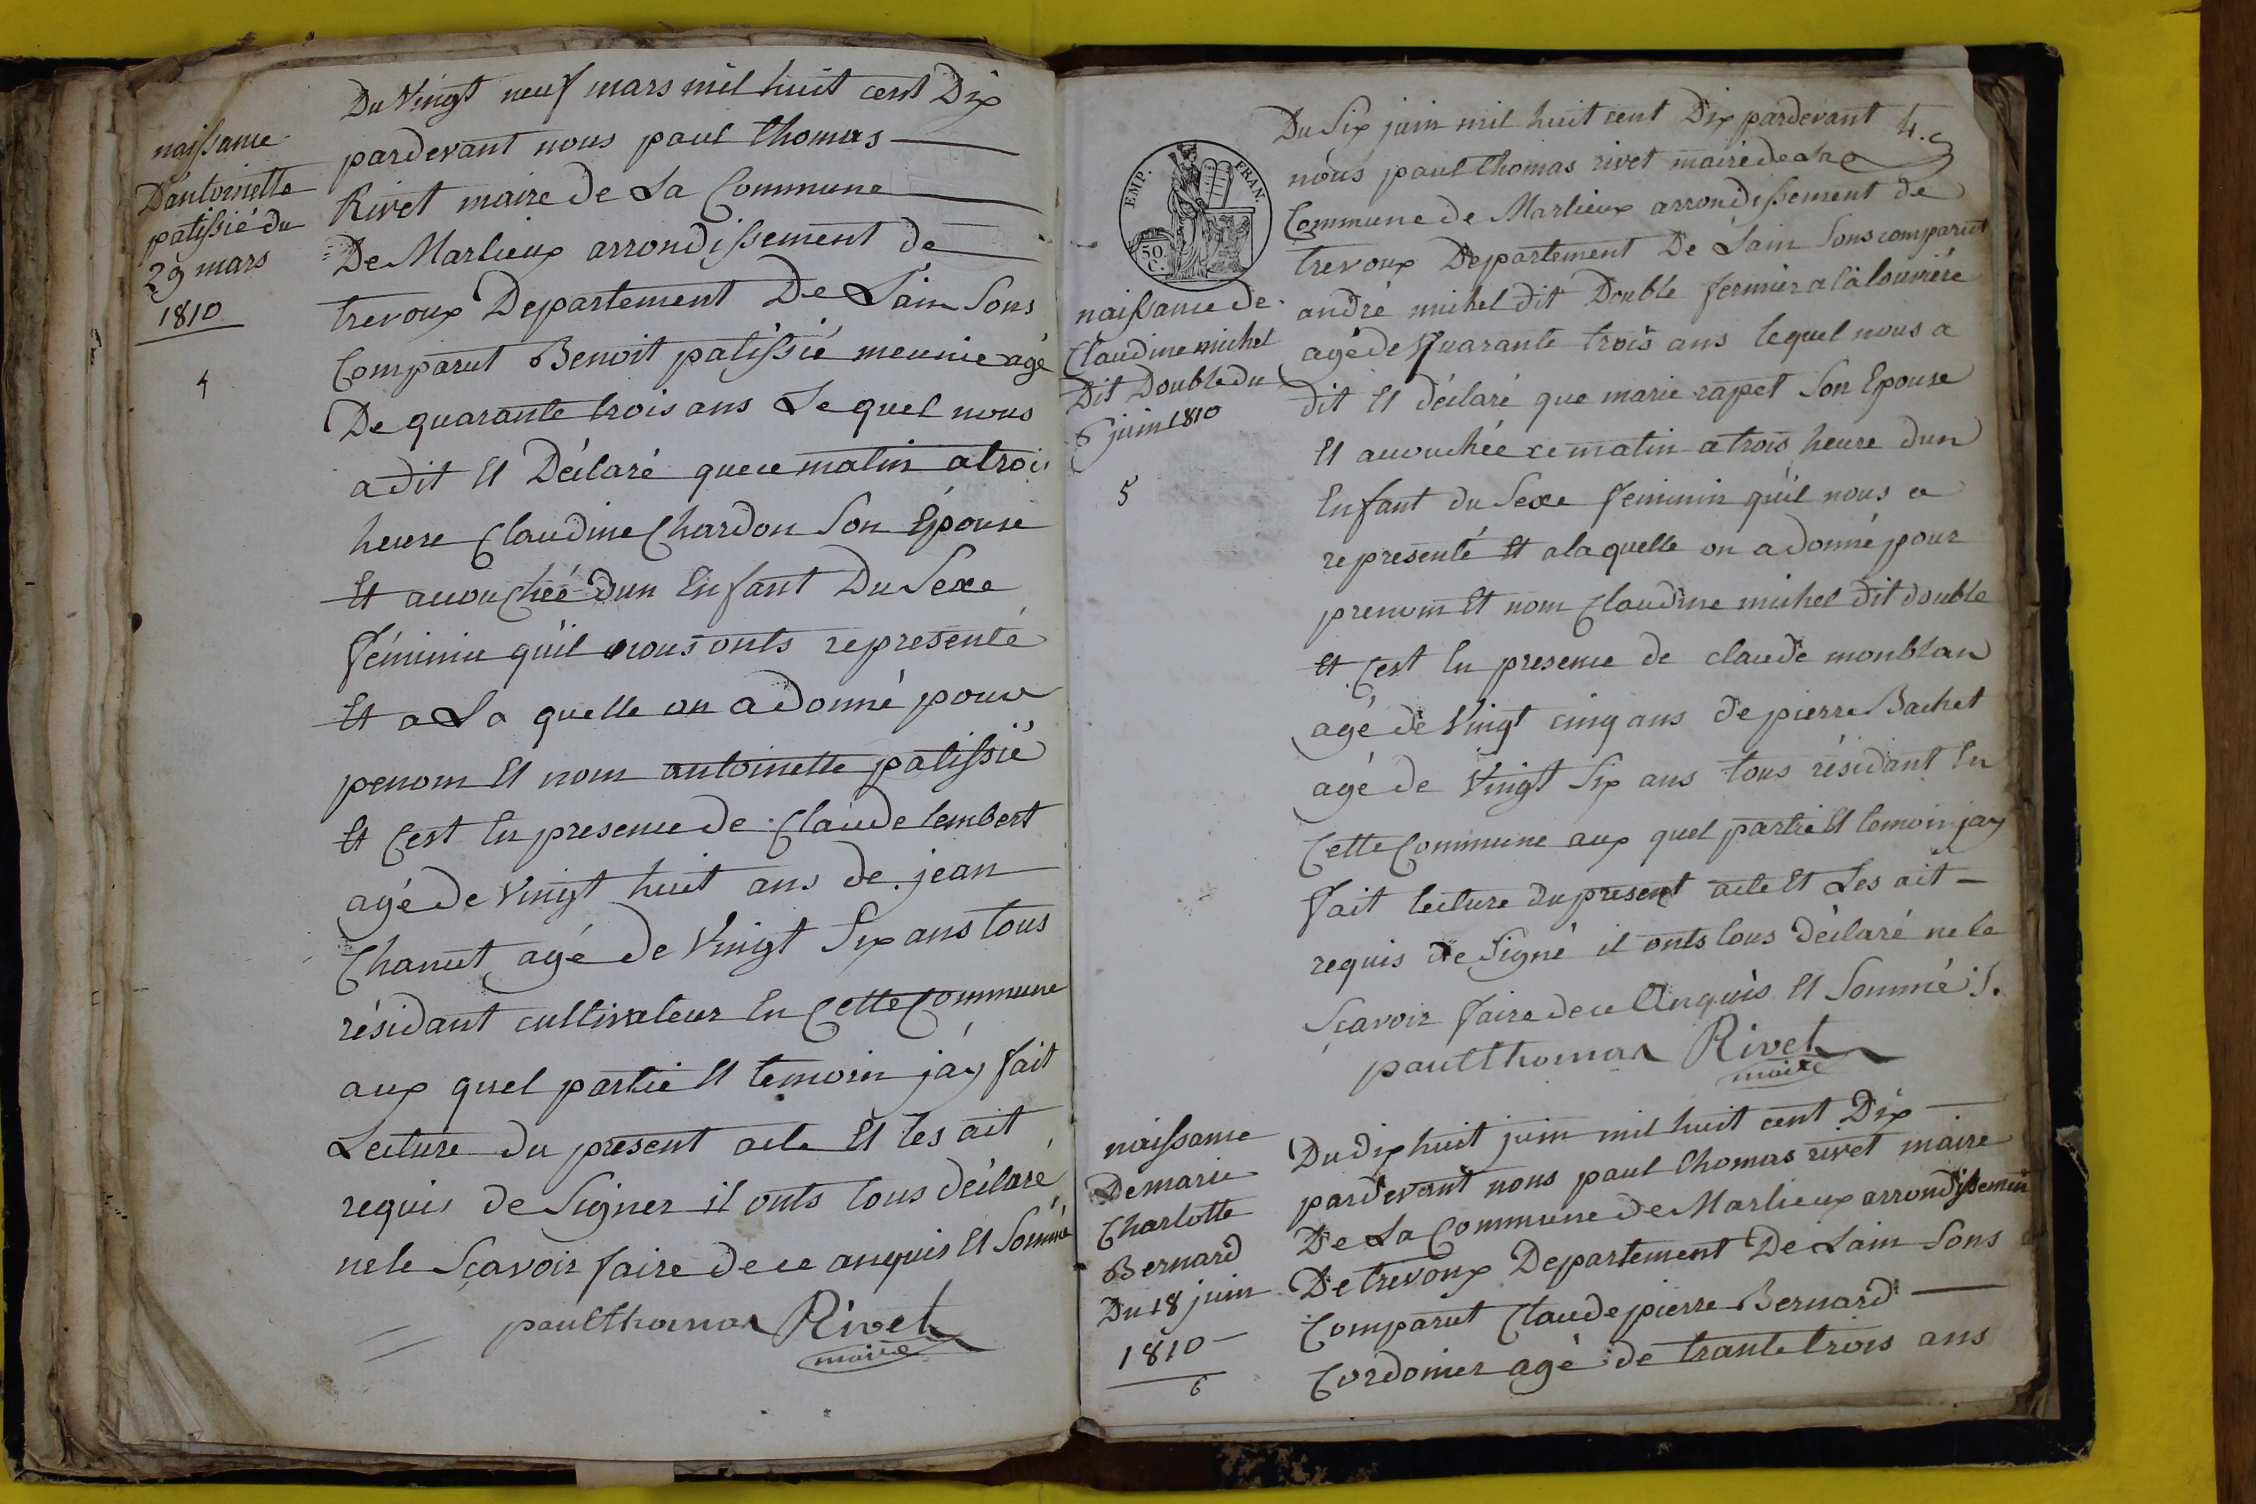 naissance
D'antoinette
patissié du
29 mars
1810
4
Du Vingt neuf mars mil huit cent Dix
pardevant nous paul thomas
Rivet maire de La Commune
De Marlieux arrondissement de
trevoux Departement De Lain Sons
Comparut Benoit patissié meunie agé
De quarante trois ans Le quel nous
a dit Et Déclaré que ce matin a trois
heure Claudine Chardon Son Épouse
Et accouchéé dun Enfant Du Sexe
féminin quil nous onts representé
Et a La quelle on a donné pour
penom Et nom antoinette patissié
Et Cest En presence de Claude lembert
agé de Vingt huit ans de jean
Chanut agé de Vingt Six ans tous
résidant cultivateur En Cette Commune
aux quel partie Et temoin jay fait
Lecture du present acte Et les ait
requis de Signer il onts tous déclaré
ne le Sçavoir faire de ce anquis Et Sommé
paul thomas Rivet
maire
4.
EMP. FRAN.
50 C.
naissance de
Claudine michel
Dit Double du
6 juin 1810
5
Du Six juin mil huit cent Dix pardevant
nous paul thomas rivet maire de La
Commune de Marlieux arrondissement de
trevoux Departement De Lain Sons comparut
andré michel dit Double fermier a la louviére
agé de Quarante trois ans lequel nous a
dit Et déclaré que marie rapet Son Epouse
Et accouchée ce matin a trois heure dun
Enfant du Sexe feminin quil nous a
representé Et a la quelle on a donné pour
prenom Et nom Claudine michel dit double
Et Cest En presence de claude monblan
agé de Vingt cinq ans de pierre Bachet
agé de Vingt Six ans tous résidant En
Cette Commune aux quel partie Et temoin jay
fait lecture du present acte Et Les ait
requis de Signé il onts tous déclaré ne le
Sçavoir faire de ce Enquis Et Sommé S.
paul thomas Rivet
maire
naissance
De marie
Charlotte
Bernard
Du 18 juin
1810
6
Du dix huit juin mil huit cent Dix
pardevant nous paul thomas rivet maire
De La Commune de Marlieux arrondissement
De trevoux Departement De Lain Sons
Comparut Claude pierre Bernard
Cordonier agé de trante trois ans